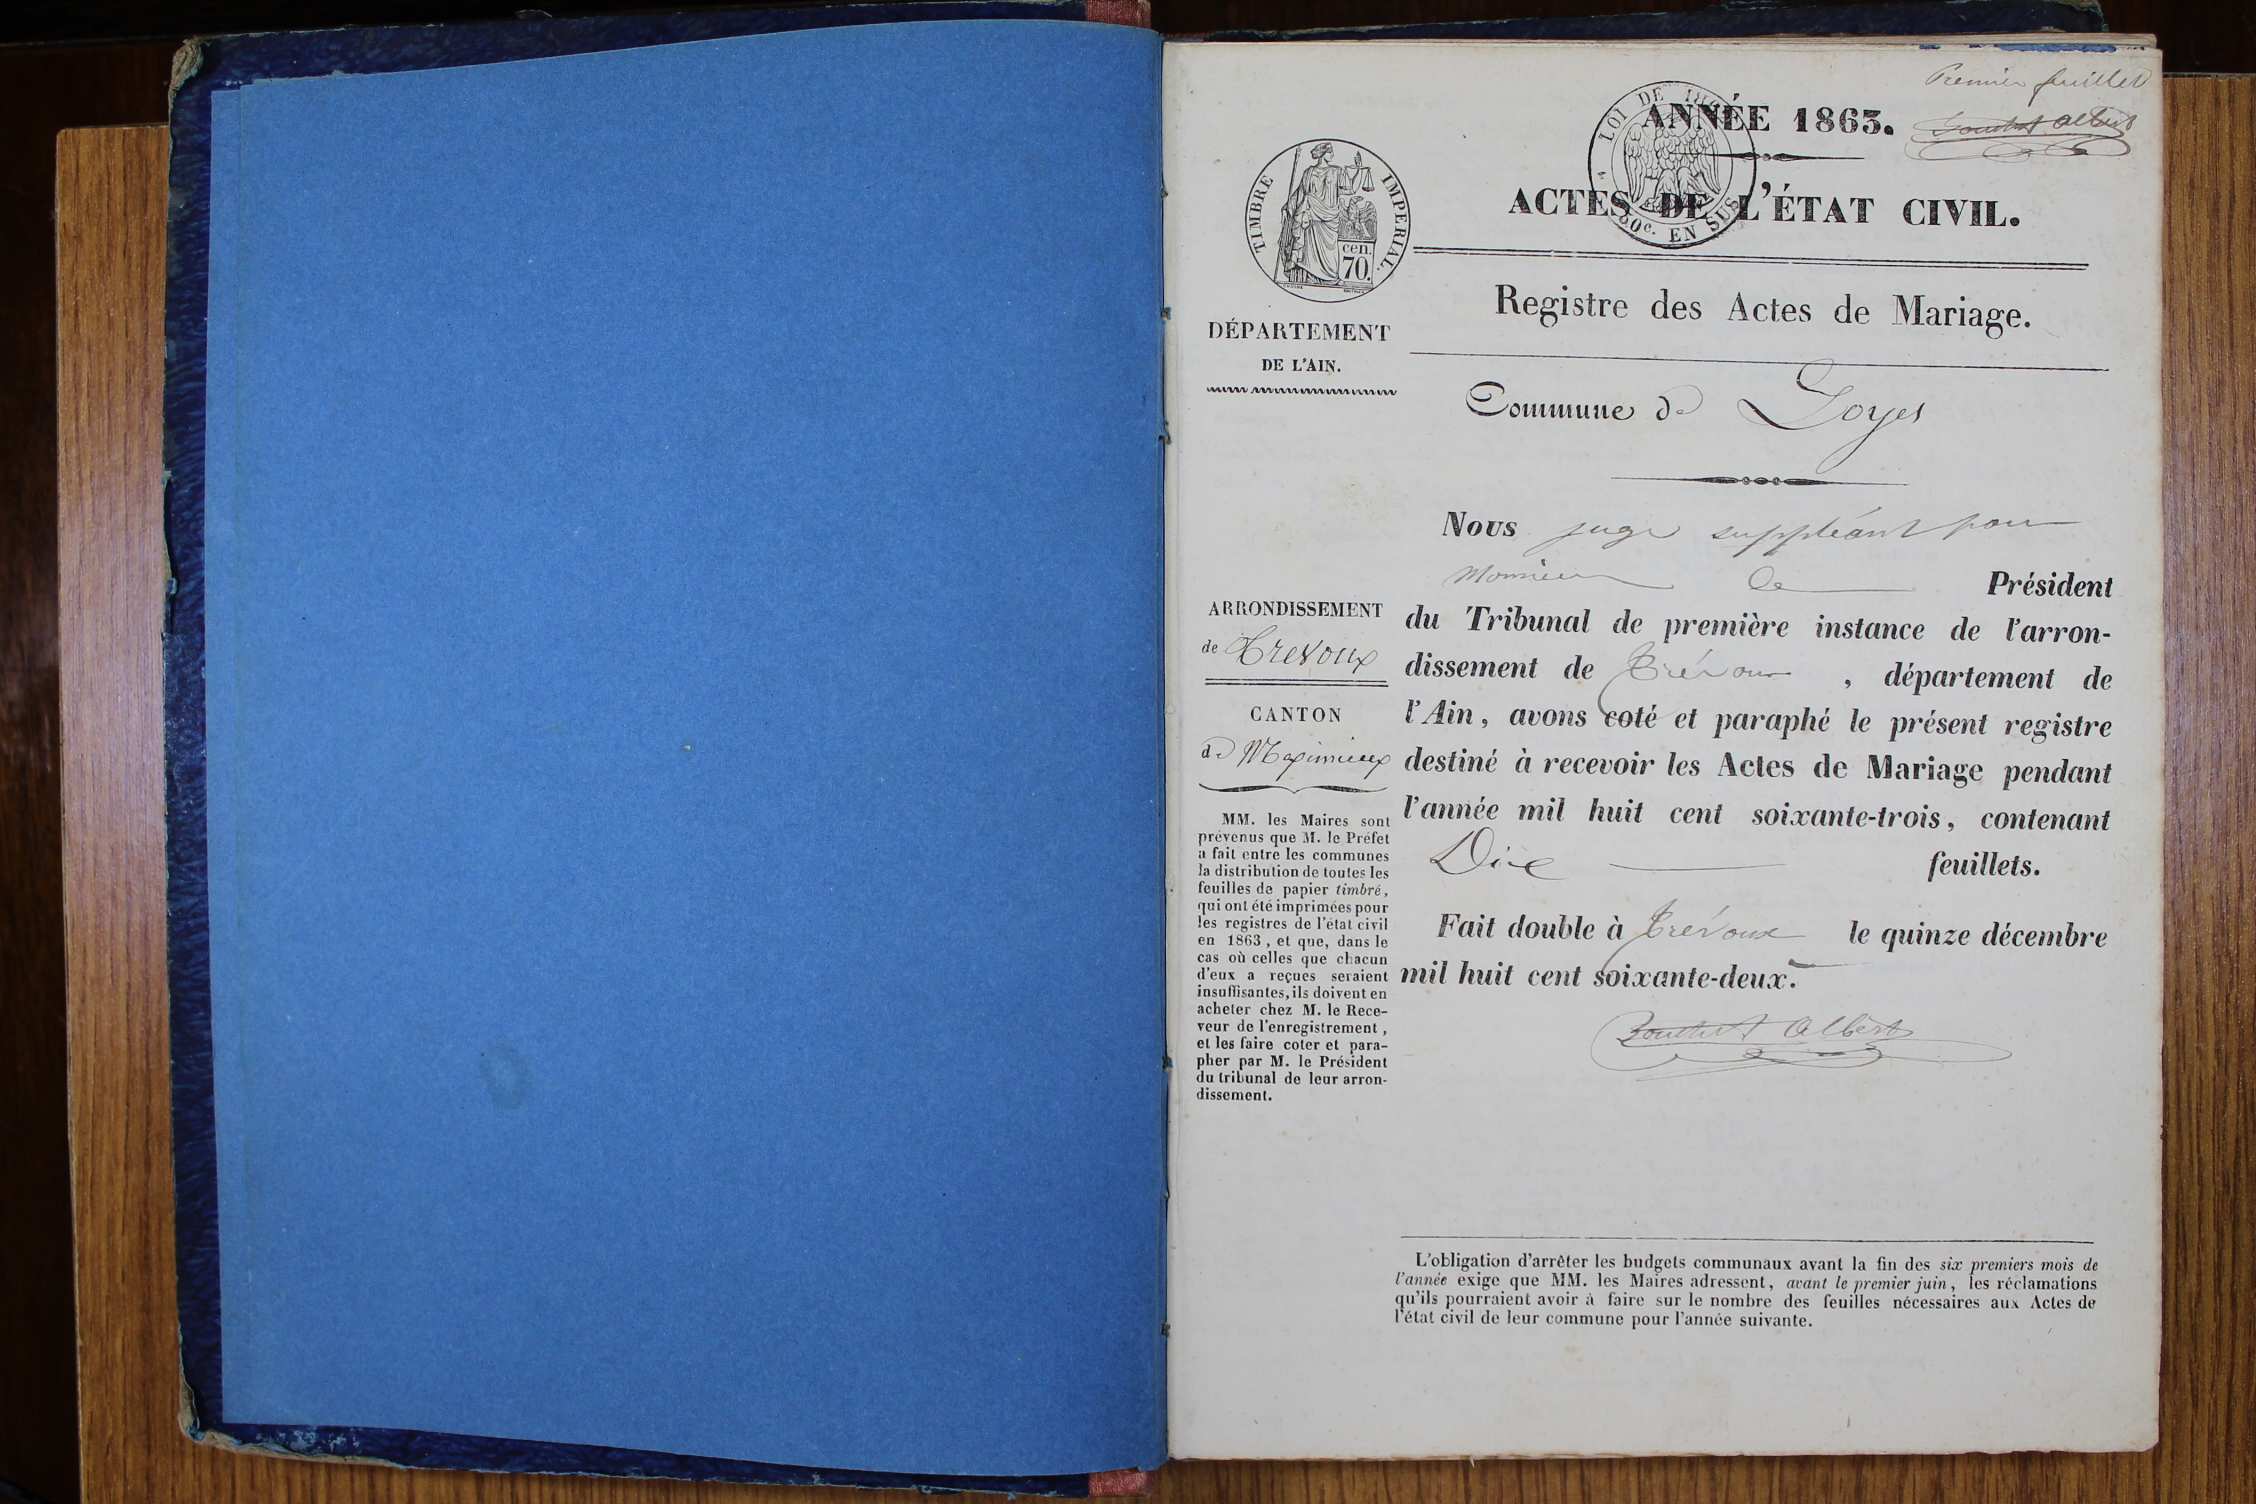 Premier feuillet
ANNÉE 1863.
LOI DE 1862
50c. EN SUS
TIMBRE IMPERIAL.
cen.
70.
ACTES DE L'ÉTAT CIVIL.
Registre des Actes de Mariage.
DÉPARTEMENT
DE L'AIN.
Commune de Loyes
Nous juge suppléant pour
Monsieur le Président
du Tribunal de première instance de l'arron-
dissement de Trévoux, département de
l'Ain, avons coté et paraphé le présent registre
destiné à recevoir les Actes de Mariage pendant
l'année mil huit cent soixante-trois, contenant
Dix feuillets.
Fait double à Trévoux le quinze décembre
mil huit cent soixante-deux.
Albert
ARRONDISSEMENT
de Trevoux
CANTON
de Meximieux
MM. les Maires sont
prévenus que M. le Préfet
a fait entre les communes
la distribution de toutes les
feuilles de papier timbré,
qui ont été imprimées pour
les registres de l'état civil
en 1863, et que, dans le
cas où celles que chacun
d'eux a reçues seraient
insuffisantes, ils doivent en
acheter chez M. le Rece-
veur de l'enregistrement,
et les faire coter et para-
pher par M. le Président
du tribunal de leur arron-
dissement.
L'obligation d'arrêter les budgets communaux avant la fin des six premiers mois de
l'année exige que MM. les Maires adressent, avant le premier juin, les réclamations
qu'ils pourraient avoir à faire sur le nombre des feuilles nécessaires aux Actes de
l'état civil de leur commune pour l'année suivante.